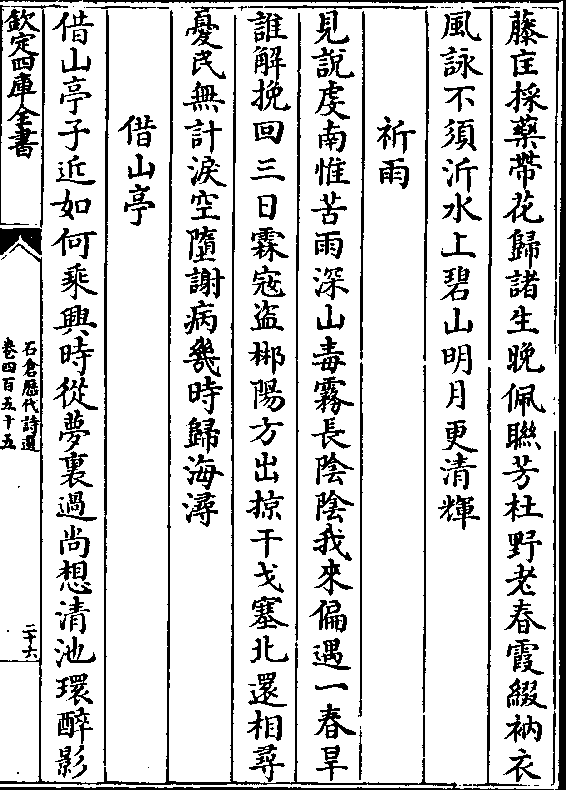 藤𥴦採藥帶花歸諸生晚佩聯芳杜野老春霞綴衲衣
風詠不須沂水上碧山明月更清輝
祈雨
見說虔南惟苦雨深山毒霧長陰陰我來偏遇一春旱
誰解挽回三日霖寇盜郴陽方出掠干戈塞北還相尋
憂民無計淚空墮謝病幾時歸海潯
借山亭
借山亭子近如何乗興時從夢裏過尚想清池環醉影
欽定四庫全書
石倉歷代詩選
卷四百五十五
二十六